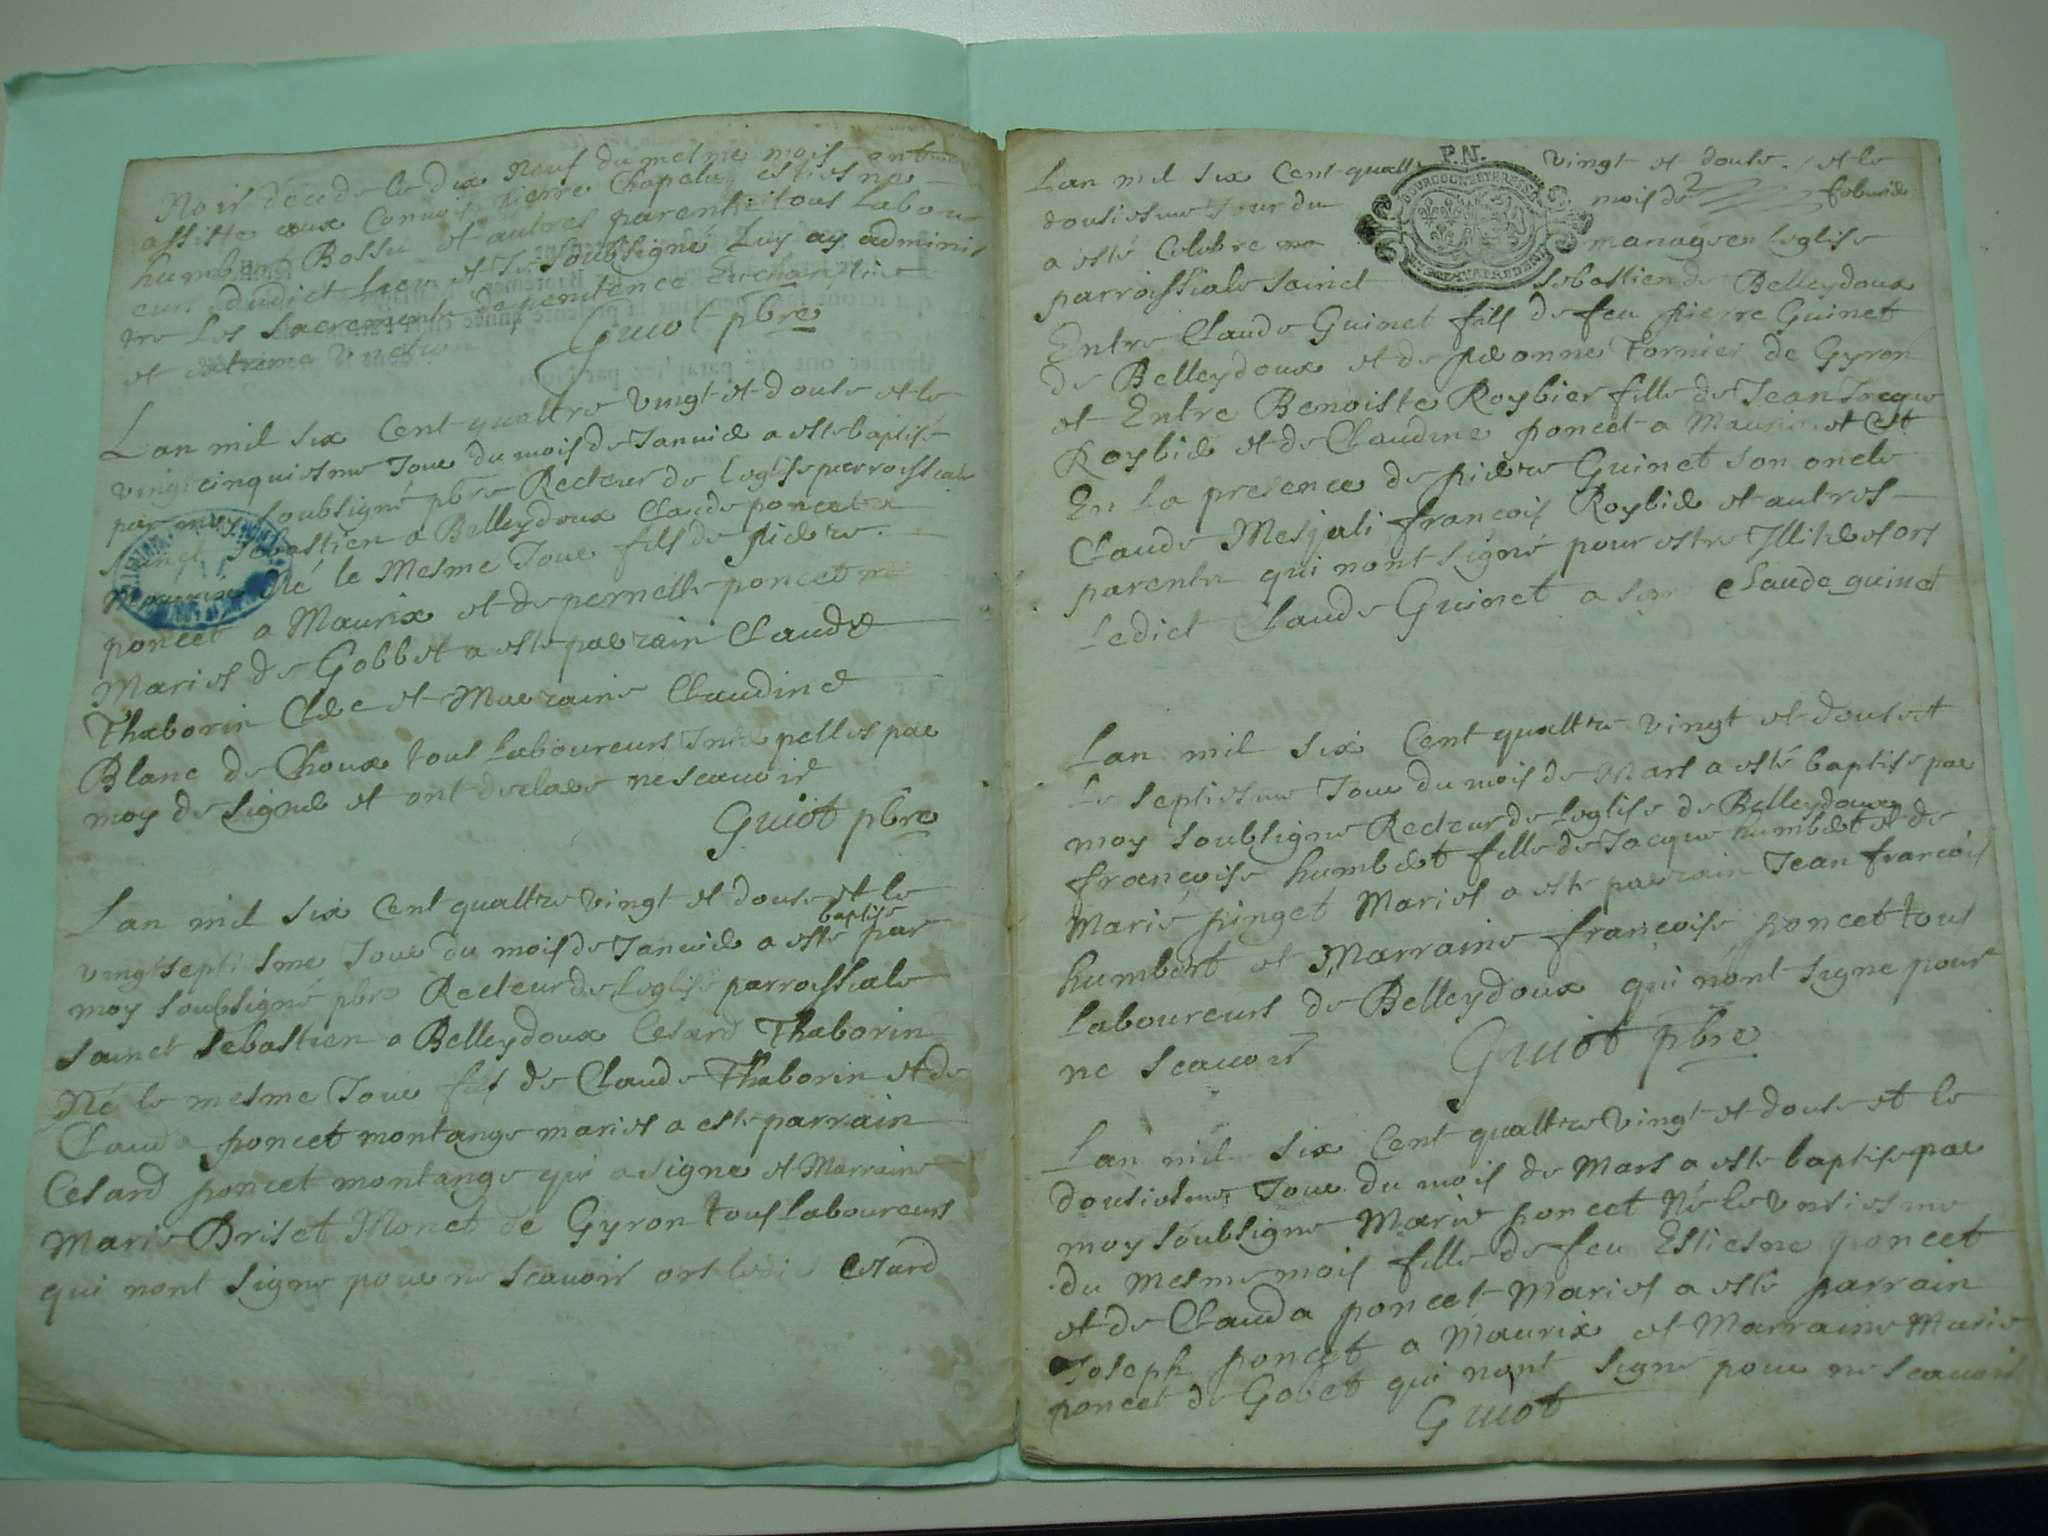 Noir decede le dix neuf du mesme mois ont
assiste aux Convoi pierre Chapelu estiesne
humbert Bossu et autres parents tous Labour
eurs dudict lieu et Je soubsigné Luy ay adminis
tre Les Sacrements de penitence Eucharistie
et extreme Unction Guiot pbre
Lan mil six Cent quattre vingt et douse et le
vingtcinquiesme Jour du mois de Januier a este baptisé
par moy soubsigné pbre Recteur de Leglise parroissiale
Sainct Sebastien a Belleydoux Claude poncet a
Maurix Né le Mesme Jour fils de pierre
poncet a Maurix et de pernette poncet
Maries de Gobbet a este parrain Claude
Thaborin Clerc et Marraine Claudine
Blanc de Choux tous Laboureurs Interpelles par
moy de signer et ont declare ne scauoir
Guiot pbre
Lan mil six Cent quattre vingt et douse et le
vingtseptiesme Jour du mois de Januier a esté baptise par
moy soubsigné pbre Recteur de Leglise parroissiale
Sainct Sebastien a Belleydoux Cesard Thaborin
Né le mesme Jour fils de Claude Thaborin et de
Clauda poncet montange maries a este parrain
Cesard poncet montange qui a signe et Marraine
Marie Briset Monet de Gyron tous Laboureurs
qui nont signe pour ne scauoir ors ledi Cesard
P.N.
Lan mil six Cent quattre vingt et douse et le
dousiesme Jour du mois de feburier
a esté Celebre mariage en Leglise
parroissiale Sainct Sebastien de Belleydoux
Entre Claude Guinet fils de feu pierre Guinet
de Belleydoux et de pieronne Tornier de Gyron
et Entre Benoiste Roybier fille de Jean Jacque
Roybier et de Claudine poncet a Maurix et cest
En La presence de pierre Guinet son oncle
Claude Mesjali francois Roybier et autres
parents qui nont signé pour estre Illiteres ors
Ledict Claude Guinet a Claude guinet
Lan mil six Cent quattre vingt et douse et
Le septiesme Jour du mois de Mars a esté baptise par
moy soubsigne Recteur de Leglise de Belleydoux
françoise humbert fille de Jacque humbert et de
Marie pinget Maries a este parrain Jean francois
humbert et Marraine françoise poncet tous
Laboureurs de Belleydoux qui nont signe pour
ne scauoir Guiot pbre
Lan mil six Cent quattre vingt et douse et le
dousiesme Jour du mois de Mars a este baptise par
moy soubsigne Marie poncet Né le unsiesme
du mesme mois fille de feu Estiesne poncet
et de Clauda poncet Maries a esté parrain
Joseph poncet a Maurix et Marraine Marie
poncet de Gobet qui nont signe pour ne scauoir
Guiot